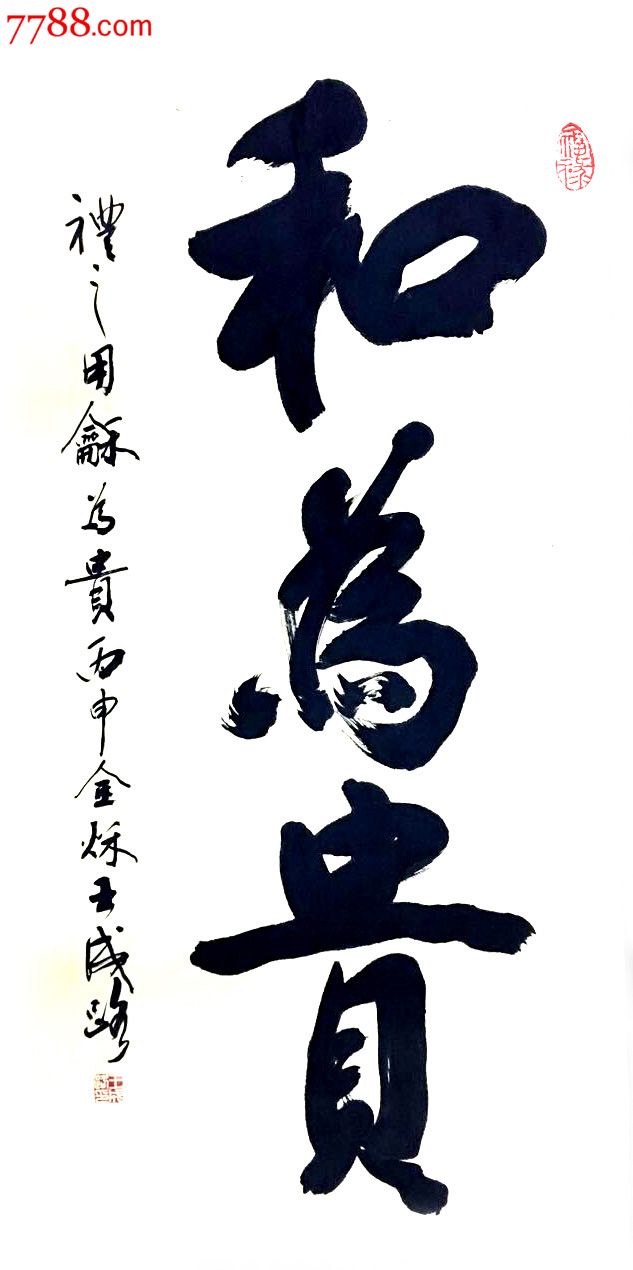 7788.com
和為貴
禮之用龢為貴丙申金秌王成路